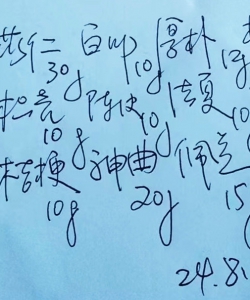 苡仁 白叩 厚朴
30g 10g 10g 12g
枳壳 陈皮 法夏
10g 10g 10g
桔梗 神曲 佩兰
10g 20g 15
24.8.